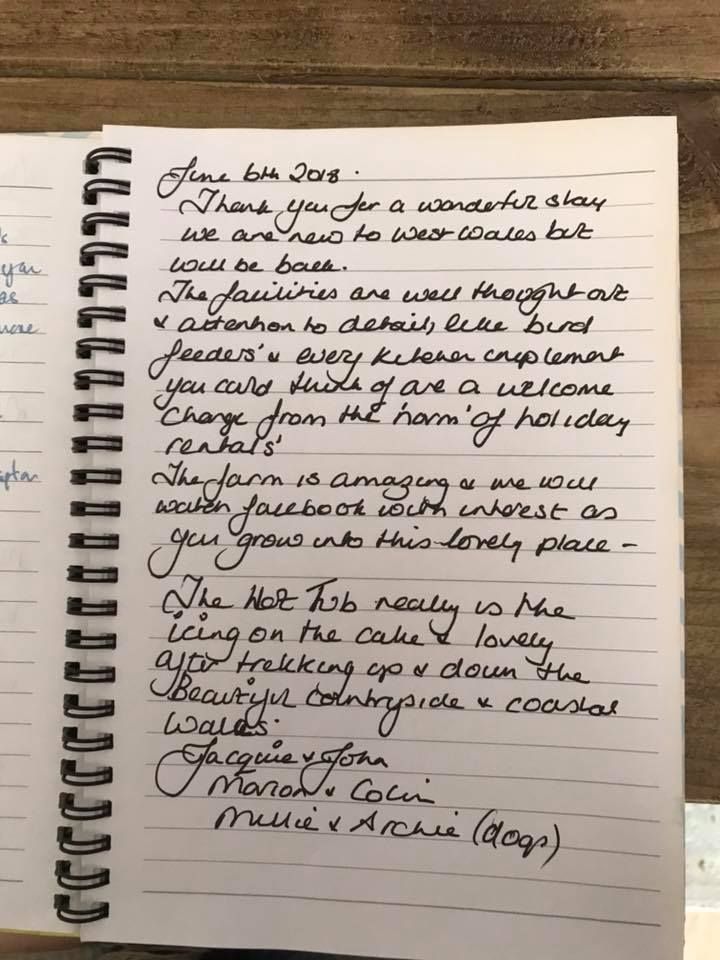 June 6th 2018.
Thank you for a wonderful stay
we are new to West Wales but
will be back.
The facilities are well thought out
& attention to detail, like bird
feeders' & every kitchen implement
you could think of are a welcome
change from the 'norm' of holiday
rentals'
The farm is amazing & we will
watch facebook with interest as
you grow into this lovely place -
The Hot Tub really is the
icing on the cake & lovely
after trekking up & down the
Beautiful countryside & coastal
Wales.
Jacquie & John
Marion & Colin
Millie & Archie (dogs)